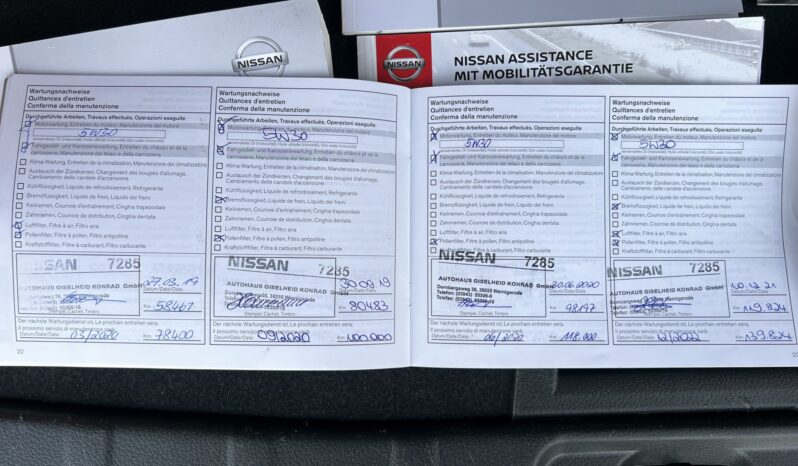 NISSAN
NISSAN
NISSAN ASSISTANCE
MIT MOBILITÄTSGARANTIE
Wartungsnachweise
Quittances d'entretien
Conferma della manutenzione
Durchgeführte Arbeiten, Travaux effectués, Operazioni eseguite
Motorwartung, Entretien du moteur, Manutenzione del motore
5W30
Fahrgestell- und Karosseriewartung, Entretien du châssis et de la
carrosserie, Manutenzione del telaio e della carrozzeria
Klima-Wartung, Entretien de la climatisation, Manutenzione del climatizzatore
Austausch der Zündkerzen, Changement des bougies d'allumage,
Cambiamento delle candele d'accensione
Kühlflüssigkeit, Liquide de refroidissement, Refrigerante
Bremsflüssigkeit, Liquide de frein, Liquido dei freni
Keilriemen, Courroie d'entraînement, Cinghia trapezoidale
Zahnriemen, Courroie de distribution, Cinghia dentata
Luftfilter, Filtre à air, Filtro aria
Pollenfilter, Filtre à pollen, Filtro antipolline
Kraftstofffilter, Filtre à carburant, Filtro carburante
NISSAN 7285
27.03.19
Datum/Date/Data
AUTOHAUS GISELHEID KONRAD GmbH
58467
Km
Stempel, Cachet, Timbro
Der nächste Wartungsdienst ist, Le prochain entretien sera,
Il prossimo servizio di manutenzione sarà:
Datum/Date/Data 03/2020 Km 78400
22
Wartungsnachweise
Quittances d'entretien
Conferma della manutenzione
Durchgeführte Arbeiten, Travaux effectués, Operazioni eseguite
Motorwartung, Entretien du moteur, Manutenzione del motore
5W30
Fahrgestell- und Karosseriewartung, Entretien du châssis et de la
carrosserie, Manutenzione del telaio e della carrozzeria
Klima-Wartung, Entretien de la climatisation, Manutenzione del climatizzatore
Austausch der Zündkerzen, Changement des bougies d'allumage,
Cambiamento delle candele d'accensione
Kühlflüssigkeit, Liquide de refroidissement, Refrigerante
Bremsflüssigkeit, Liquide de frein, Liquido dei freni
Keilriemen, Courroie d'entraînement, Cinghia trapezoidale
Zahnriemen, Courroie de distribution, Cinghia dentata
Luftfilter, Filtre à air, Filtro aria
Pollenfilter, Filtre à pollen, Filtro antipolline
Kraftstofffilter, Filtre à carburant, Filtro carburante
NISSAN 7285
30.09.19
Datum/Date/Data
AUTOHAUS GISELHEID KONRAD GmbH
Dornbergsweg 36, 38855 Wernigerode
80483
Km
Stempel, Cachet, Timbro
Der nächste Wartungsdienst ist, Le prochain entretien sera,
Il prossimo servizio di manutenzione sarà:
Datum/Date/Data 09/2020 Km 100.000
Wartungsnachweise
Quittances d'entretien
Conferma della manutenzione
Durchgeführte Arbeiten, Travaux effectués, Operazioni eseguite
Motorwartung, Entretien du moteur, Manutenzione del motore
5W30
Fahrgestell- und Karosseriewartung, Entretien du châssis et de la
carrosserie, Manutenzione del telaio e della carrozzeria
Klima-Wartung, Entretien de la climatisation, Manutenzione del climatizzatore
Austausch der Zündkerzen, Changement des bougies d'allumage,
Cambiamento delle candele d'accensione
Kühlflüssigkeit, Liquide de refroidissement, Refrigerante
Bremsflüssigkeit, Liquide de frein, Liquido dei freni
Keilriemen, Courroie d'entraînement, Cinghia trapezoidale
Zahnriemen, Courroie de distribution, Cinghia dentata
Luftfilter, Filtre à air, Filtro aria
Pollenfilter, Filtre à pollen, Filtro antipolline
Filtre à carburant, Filtro carburante
NISSAN 7285
30.06.2020
Datum/Date/Data
AUTOHAUS GISELHEID KONRAD GmbH
Dornbergsweg 36, 38855 Wernigerode
98197
Km
Stempel, Cachet, Timbro
Der nächste Wartungsdienst ist, Le prochain entretien sera,
Il prossimo servizio di manutenzione sarà:
Datum/Date/Data Km 118.000
Wartungsnachweise
Quittances d'entretien
Conferma della manutenzione
Durchgeführte Arbeiten, Travaux effectués, Operazioni eseguite
Motorwartung, Entretien du moteur, Manutenzione del motore
5W30
Fahrgestell- und Karosseriewartung, Entretien du châssis et de la
carrosserie, Manutenzione del telaio e della carrozzeria
Klima-Wartung, Entretien de la climatisation, Manutenzione del
Austausch der Zündkerzen, Changement des bougies d'allumage,
Cambiamento delle candele d'accensione
Kühlflüssigkeit, Liquide de refroidissement, Refrigerante
Bremsflüssigkeit, Liquide de frein, Liquido dei freni
Keilriemen, Courroie d'entraînement, Cinghia trapezoidale
Zahnriemen, Courroie de distribution, Cinghia dentata
Luftfilter, Filtre à air, Filtro aria
Pollenfilter, Filtre à pollen, Filtro antipolline
Kraftstofffilter, Filtre à carburant, Filtro carburante
NISSAN 7285
10.12.21
Datum/Date/Data
AUTOHAUS GISELHEID KONRAD GmbH
119.824
Km
Stempel, Cachet, Timbro
Der nächste Wartungsdienst ist, Le prochain entretien sera,
Il prossimo servizio di manutenzione sarà:
Datum/Date/Data 12/2022 Km 139.824